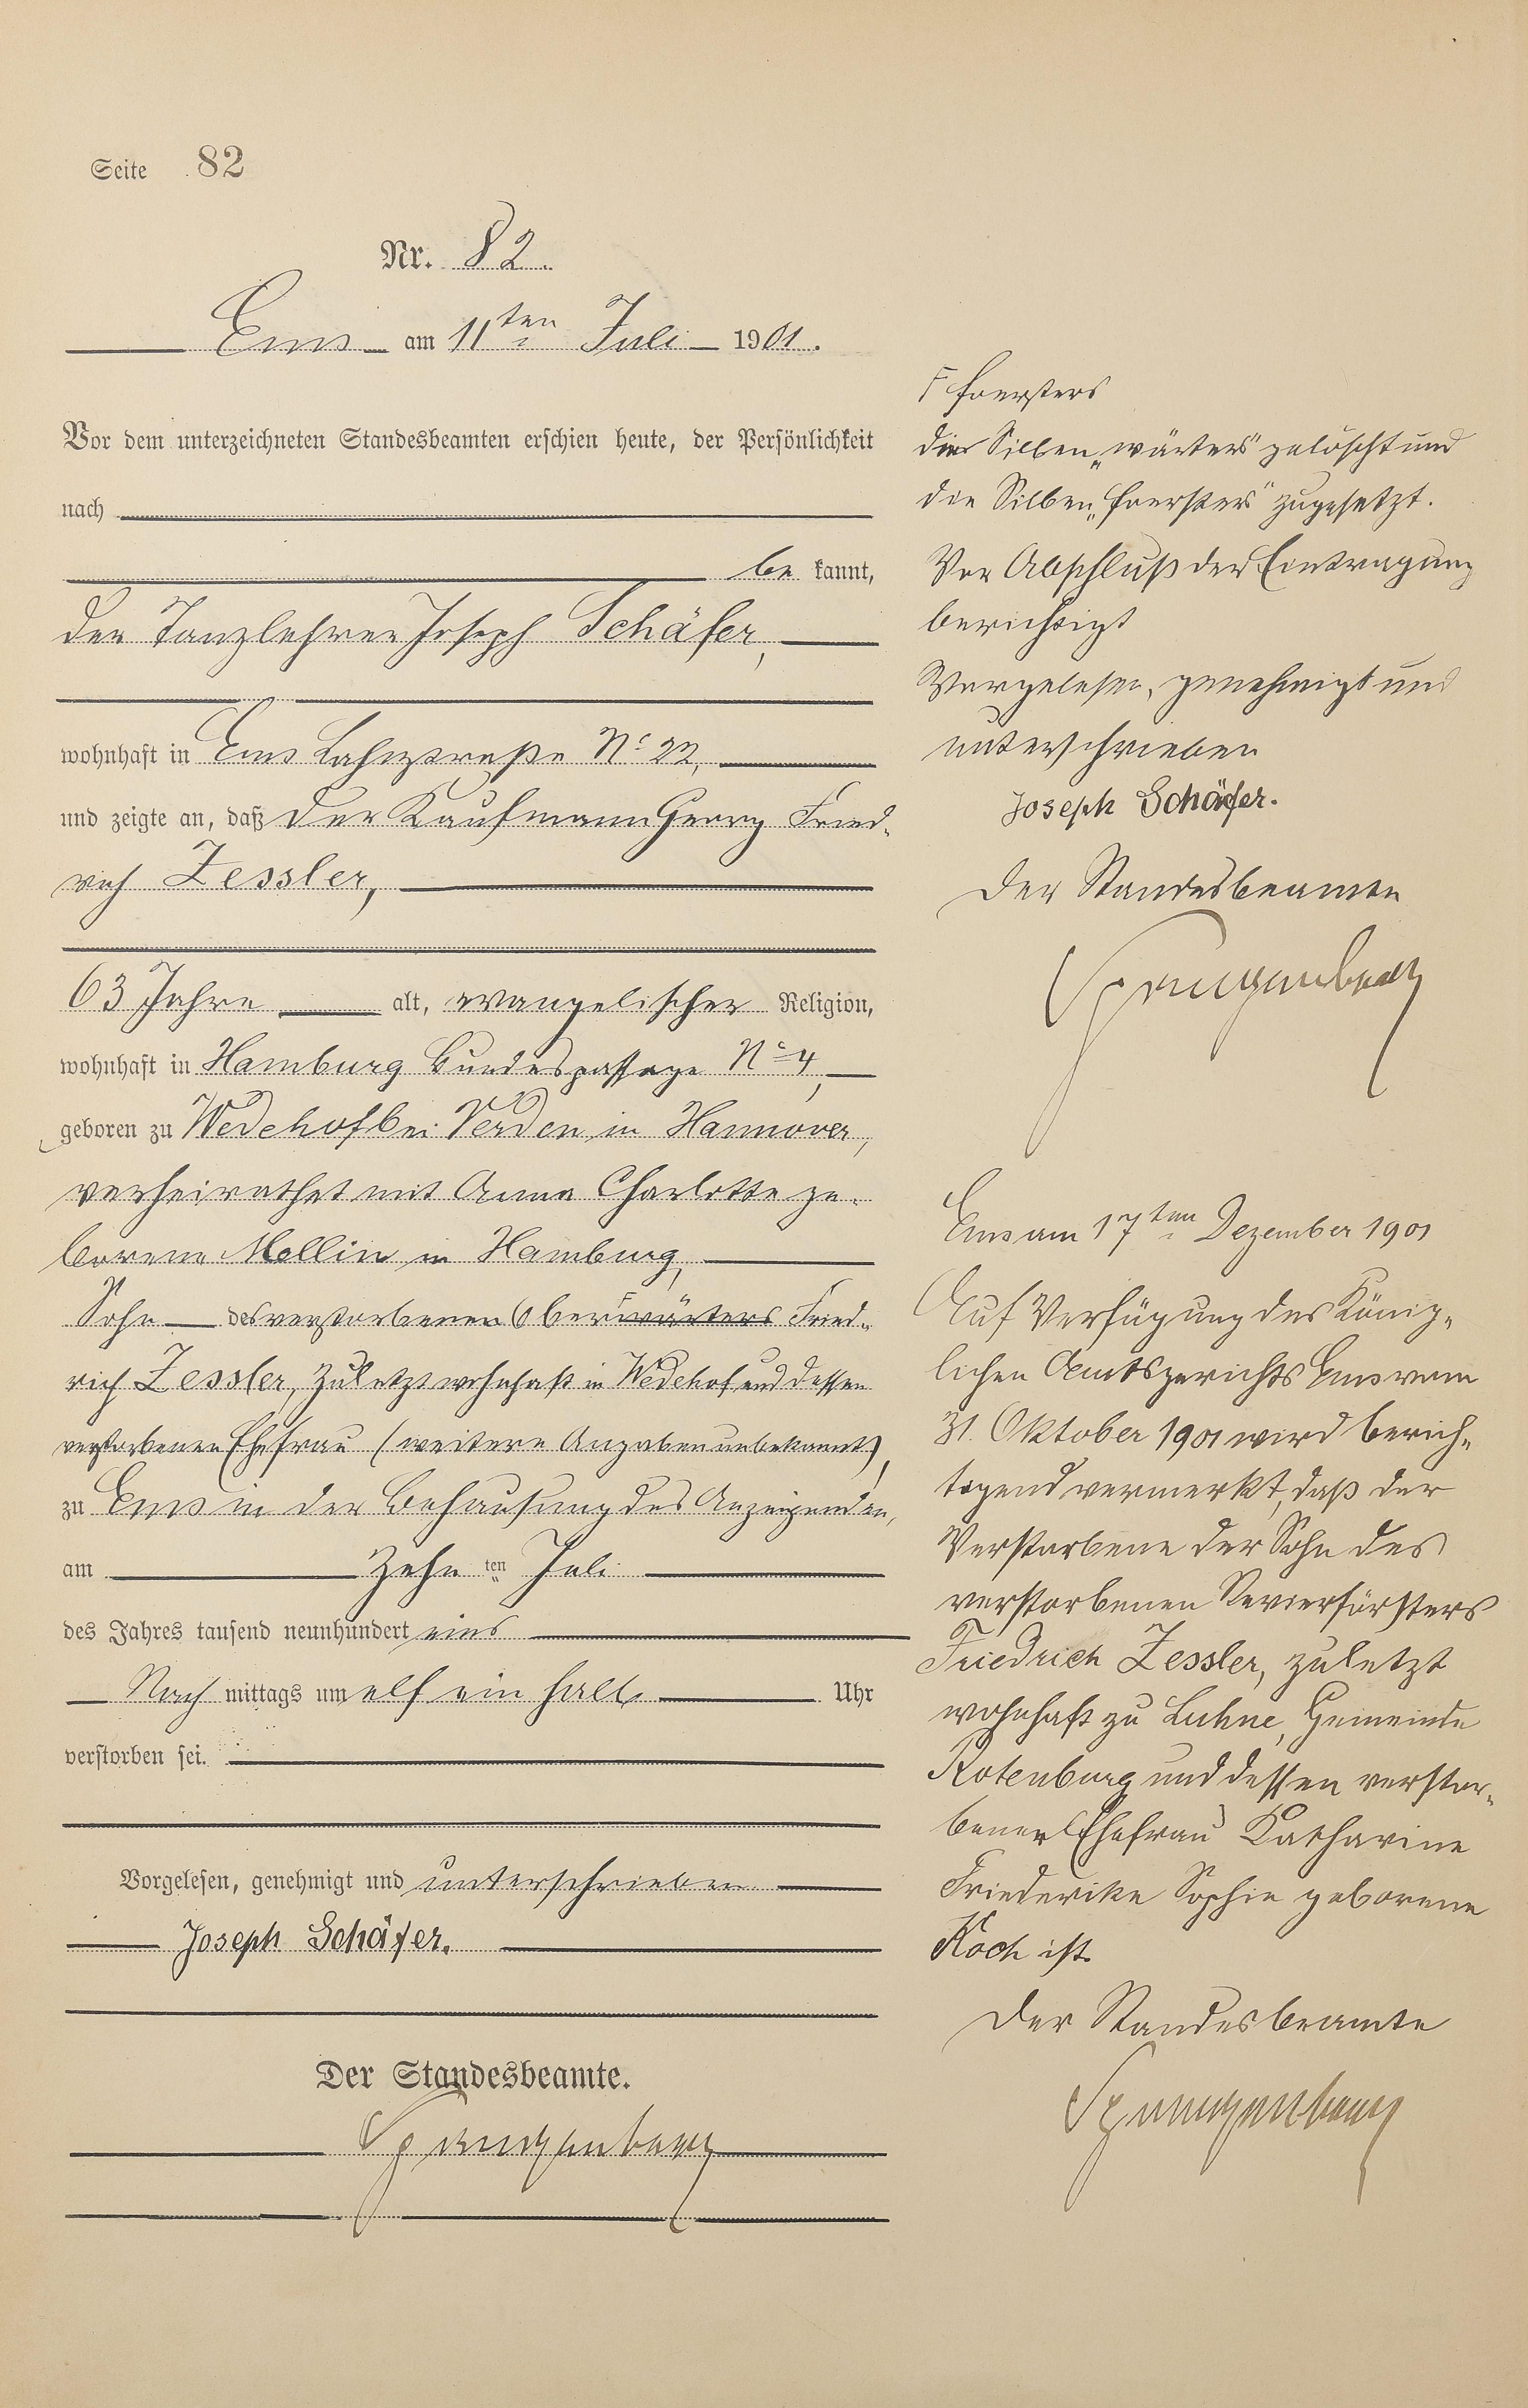 Seite 82
Nr. 82.
Ems am 11ten Juli 1901.
Vor dem unterzeichneten Standesbeamten erschien heute, der Persönlichkeit
nach
be kannt,
der Tanzlehrer Joseph Schäfer,
wohnhaft in Ems Lahnstraße No 22,
und zeigte an, daß der Kaufmann Georg Fried-
rich Zessler,
63 Jahre alt, evangelischer Religion,
wohnhaft in Hamburg Bundespassage No 4,
geboren zu Wedehof bei Verden in Hannover,
verheirathet mit Anna Charlotte ge-
borene Mollin in Hamburg,
Sohn des verstorbenen Ober⌈wärters Fried-
rich Zessler, zuletzt wohnhaft in Wedehof und dessen
verstorbenen Ehefrau (weitere Angaben unbekannt),
zu Ems in der Behausung des Anzeigenden,
am zehn ten Juli
des Jahres tausend neunhundert eins
Nach mittags um elf ein halb Uhr
verstorben sei.
Vorgelesen, genehmigt und unterschrieben
Joseph Schäfer.
Der Standesbeamte.
⌈ foersters
die Silben „wärters" gelöscht und
die Silben „foersters" zugesetzt.
Vor Abschluß der Eintragung
berichtigt
Vorgelesen, genehmigt und
unterschrieben
Joseph Schäfer.
Der Standesbeamte
Ems am 17ten Dezember 1901
Auf Verfügung des König-
lichen Amtsgerichts Ems vom
31. Oktober 1901 wird berich-
tigend vermerkt, daß der
Verstorbene der Sohn des
verstorbenen Revierförsters
Friedrich Zessler, zuletzt
wohnhaft zu Luhne, Gemeinde
Rotenburg und dessen verstor-
benen Ehefrau Katharine
Friederike Sophie geborene
Koch ist.
Der Standesbeamte